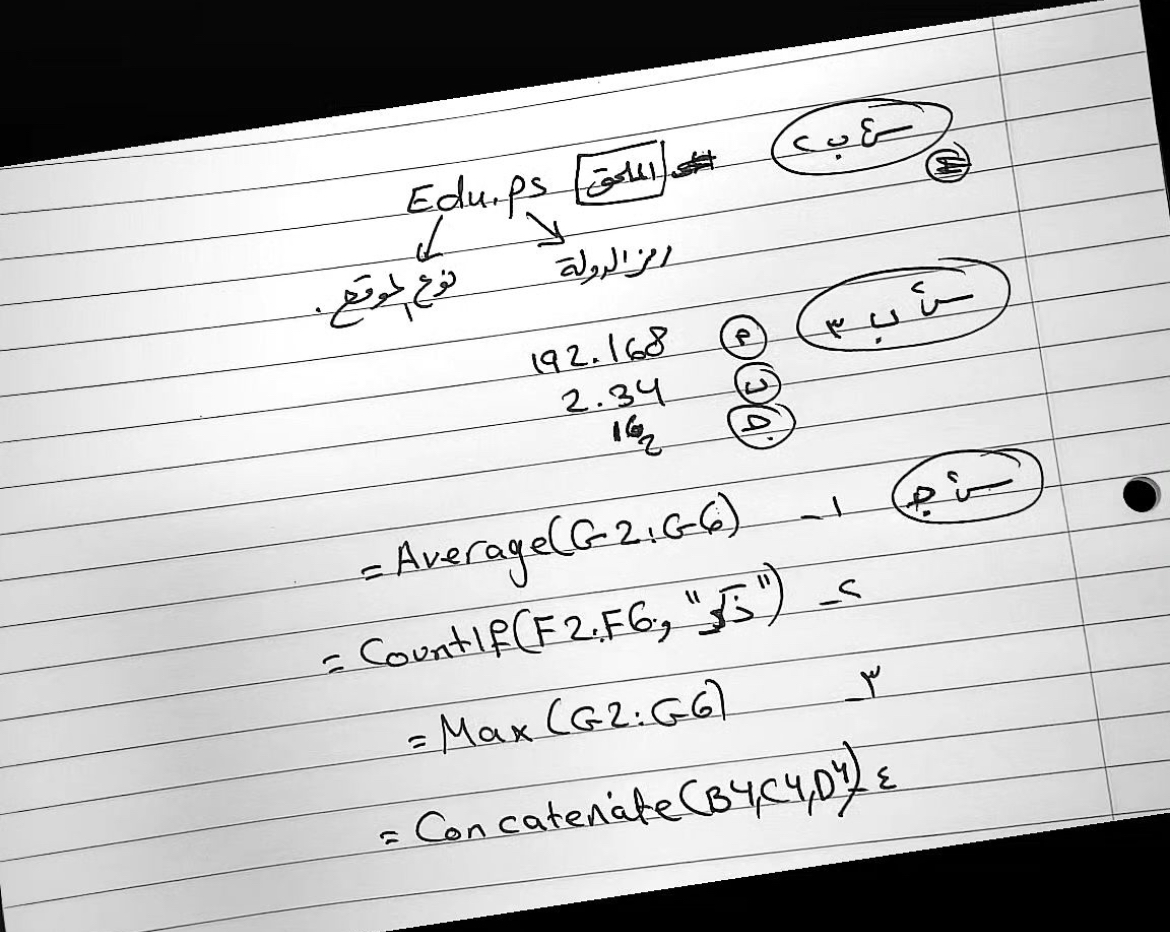 س٤ ب ٢
الملحق Edu.ps
رمز الدولة
نوع الموقع.
س٤ ب ٣
أ 192.168
ب 2.34
ج 162
س٤ ج
١- =Average(G2:G6)
٢- =CountIf(F2:F6, "ذكر")
٣- =Max(G2:G6)
٤- =Concatenate(B4,C4,D4)